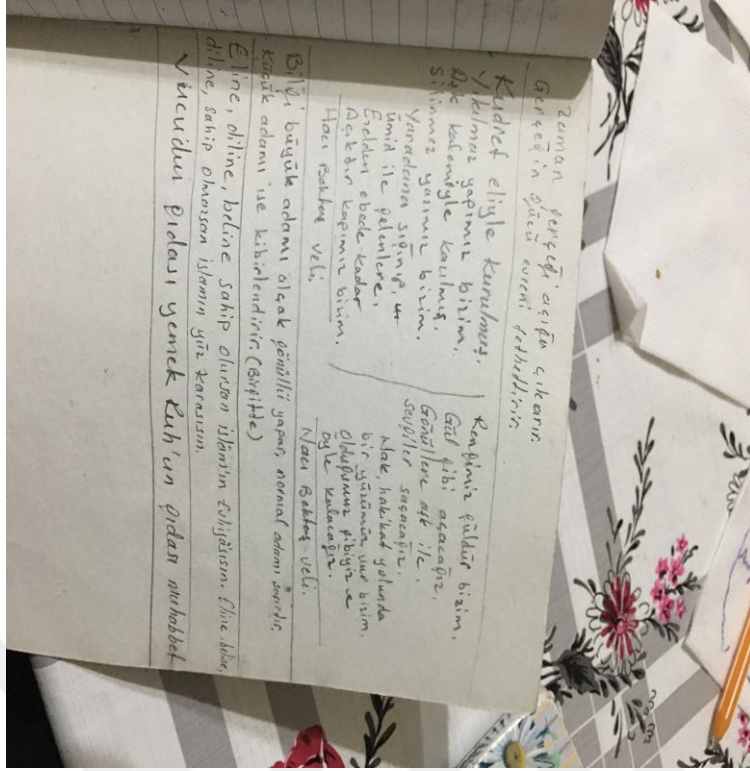 Zaman gerçeği açığa çıkarır.
Gerçeğin gücü evreni fethettirir.
Kudret eliyle kurulmuş.
Yıkılmaz yapımız bizim.
Aşk kalemiyle kazılmış.
Silinmez yazımız bizim.
Yaradana sığınıp,
Ümid ile gelenlere,
Ezelden ebede kadar
Açıktır kapımız bizim.
Hacı Bektaş Veli
Rengimiz güldür bizim.
Gül gibi açacağız,
Gönüllere aşk ile,
sevgiler saçacağız.
Hak, hakikat yolunda
bir yüzümüz var bizim.
Olduğumuz gibiyiz ve
öyle kalacağız.
Hacı Bektaş Veli.
Bilgi büyük adamı alçak gönüllü yapar, normal adamı şaşırtır,
küçük adamı ise kibirlendirir. (Birgitte)
Eline, diline, beline sahip olursan islâm'ın
Eline, beline,
diline, sahip olmazsan islamın yüz karasısın.
Vücudun gıdası yemek Ruh'un gıdası muhabbet